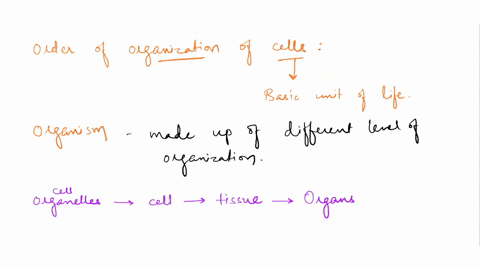 Order of organization of cells :
Basic unit of life.
Organism - made up of different level of
organization.
cell
Organelles → cell → tissue → Organs